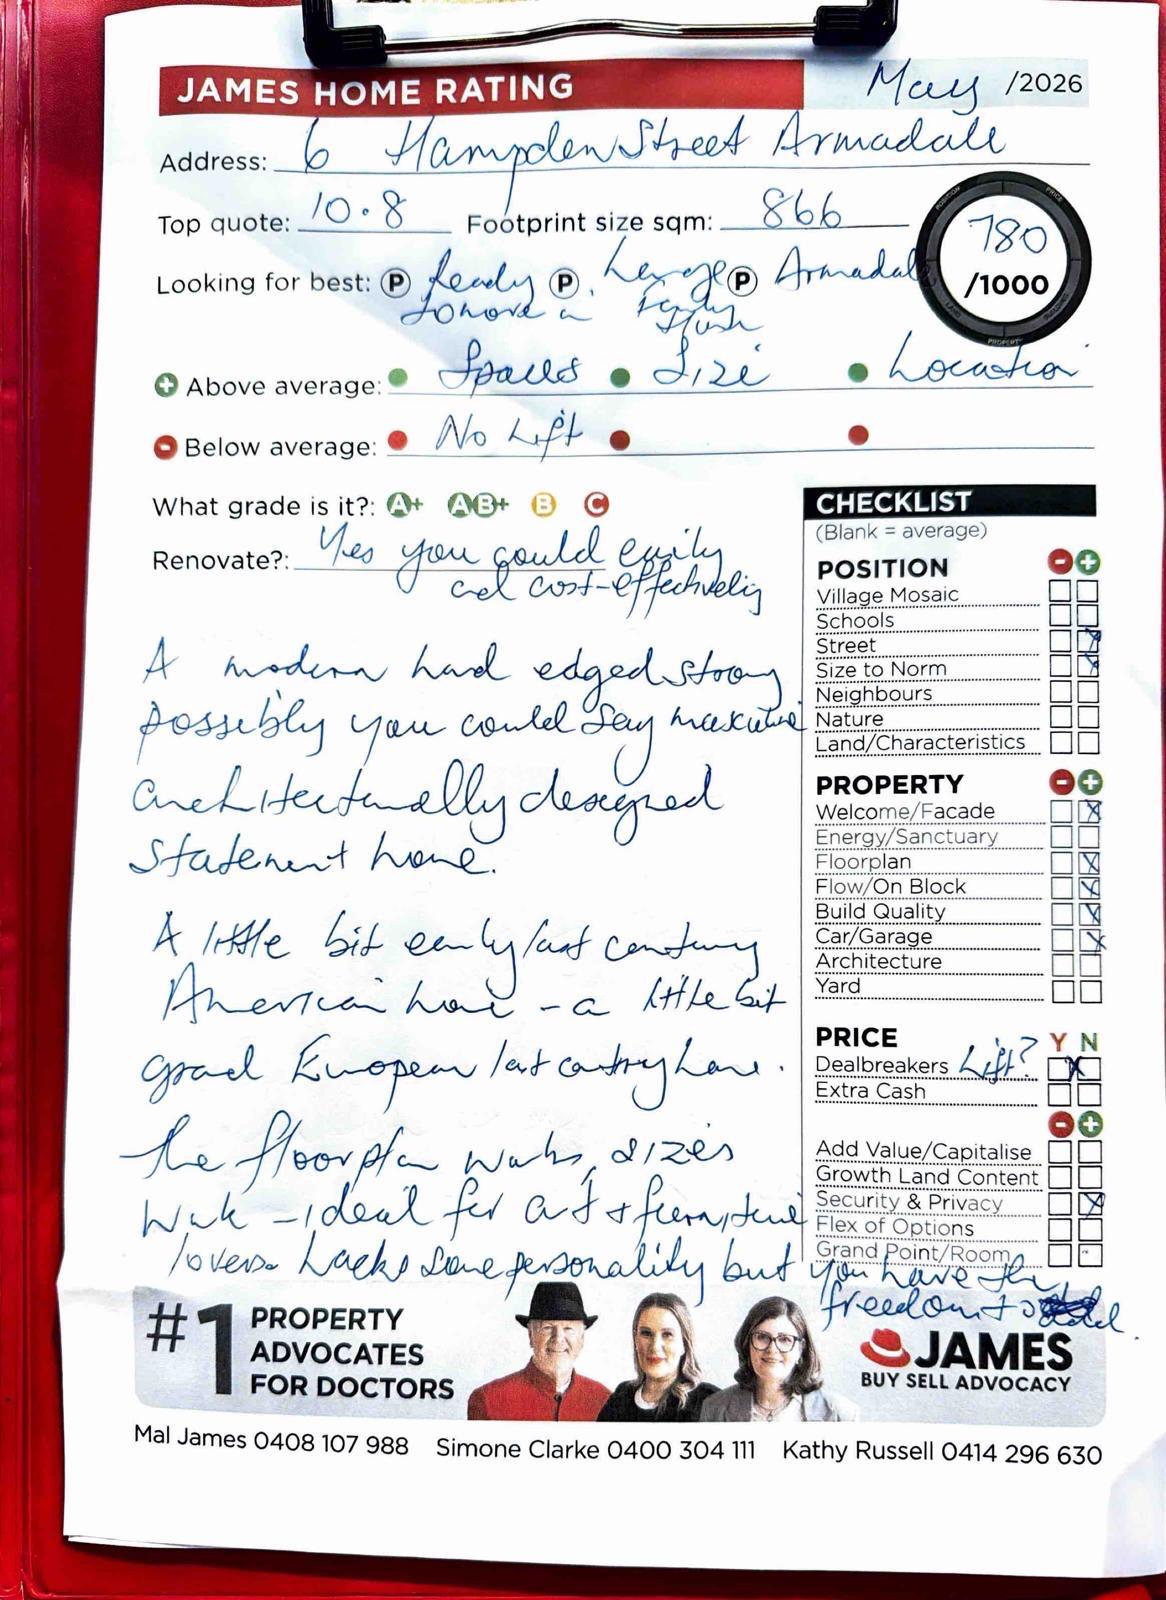 JAMES HOME RATING May /2026
Address: 6 Hampden Street Armadale
Top quote: 10.8 Footprint size sqm: 866
780
/1000
POSITION PRICE PROPERTY
Looking for best: P Ready P Large P Armadale
to move in family
Above average: Spaces Size Location
Below average: No Lift
What grade is it?: A+ AB+ B C
Renovate?: Yes you could easily
and cost-effectively
A modern hard edged strong
possibly you could say masculine
architecturally designed
statement home.
A little bit early last century
American home - a little bit
grand European last century home.
The floorplan works, sizes
work - ideal for art & furniture
lovers. Lacks some personality but you have the
freedom to add.
CHECKLIST
(Blank = average)
POSITION - +
Village Mosaic
Schools
Street X
Size to Norm X
Neighbours
Nature
Land/Characteristics
PROPERTY - +
Welcome/Facade X
Energy/Sanctuary
Floorplan X
Flow/On Block X
Build Quality X
Car/Garage X
Architecture
Yard
PRICE Y N
Dealbreakers Lift? X
Extra Cash
- +
Add Value/Capitalise
Growth Land Content
Security & Privacy X
Flex of Options
Grand Point/Room
#1 PROPERTY
ADVOCATES
FOR DOCTORS
JAMES
BUY SELL ADVOCACY
Mal James 0408 107 988 Simone Clarke 0400 304 111 Kathy Russell 0414 296 630